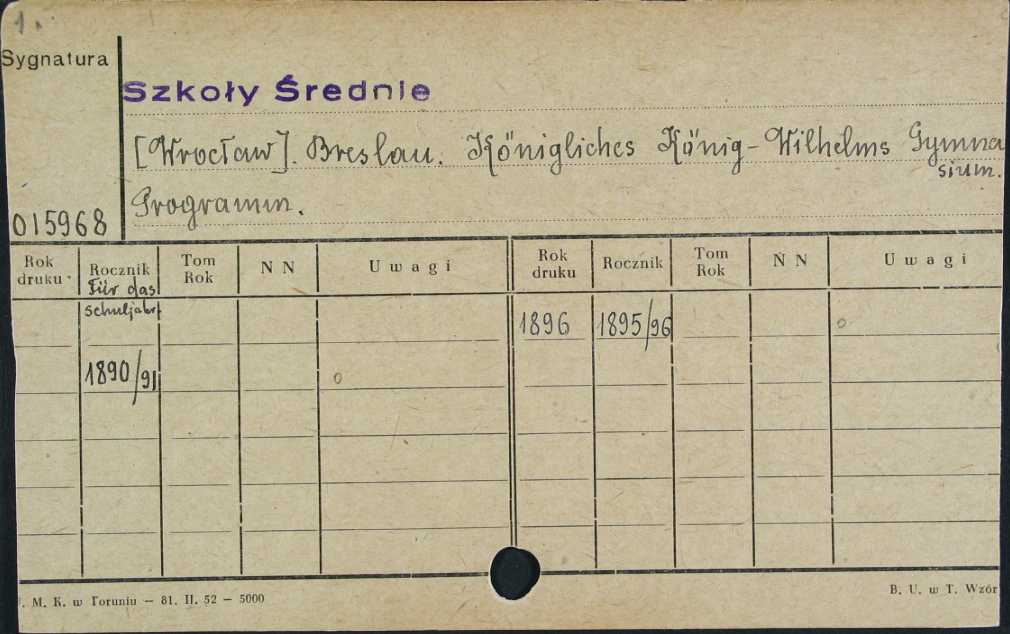 1.
Sygnatura
Szkoły Średnie
[Wrocław]. Breslau. Königliches König-Wilhelms Gymna
sium.
Programm.
015968
Rok druku Rocznik Tom Rok N N Uwagi Rok druku Rocznik Tom Rok N N Uwagi
Für das
Schuljahr
1896 1895/96 o
1890/91 o
. M. K. w Toruniu — 81. II. 52 — 5000
B. U. w T. Wzór